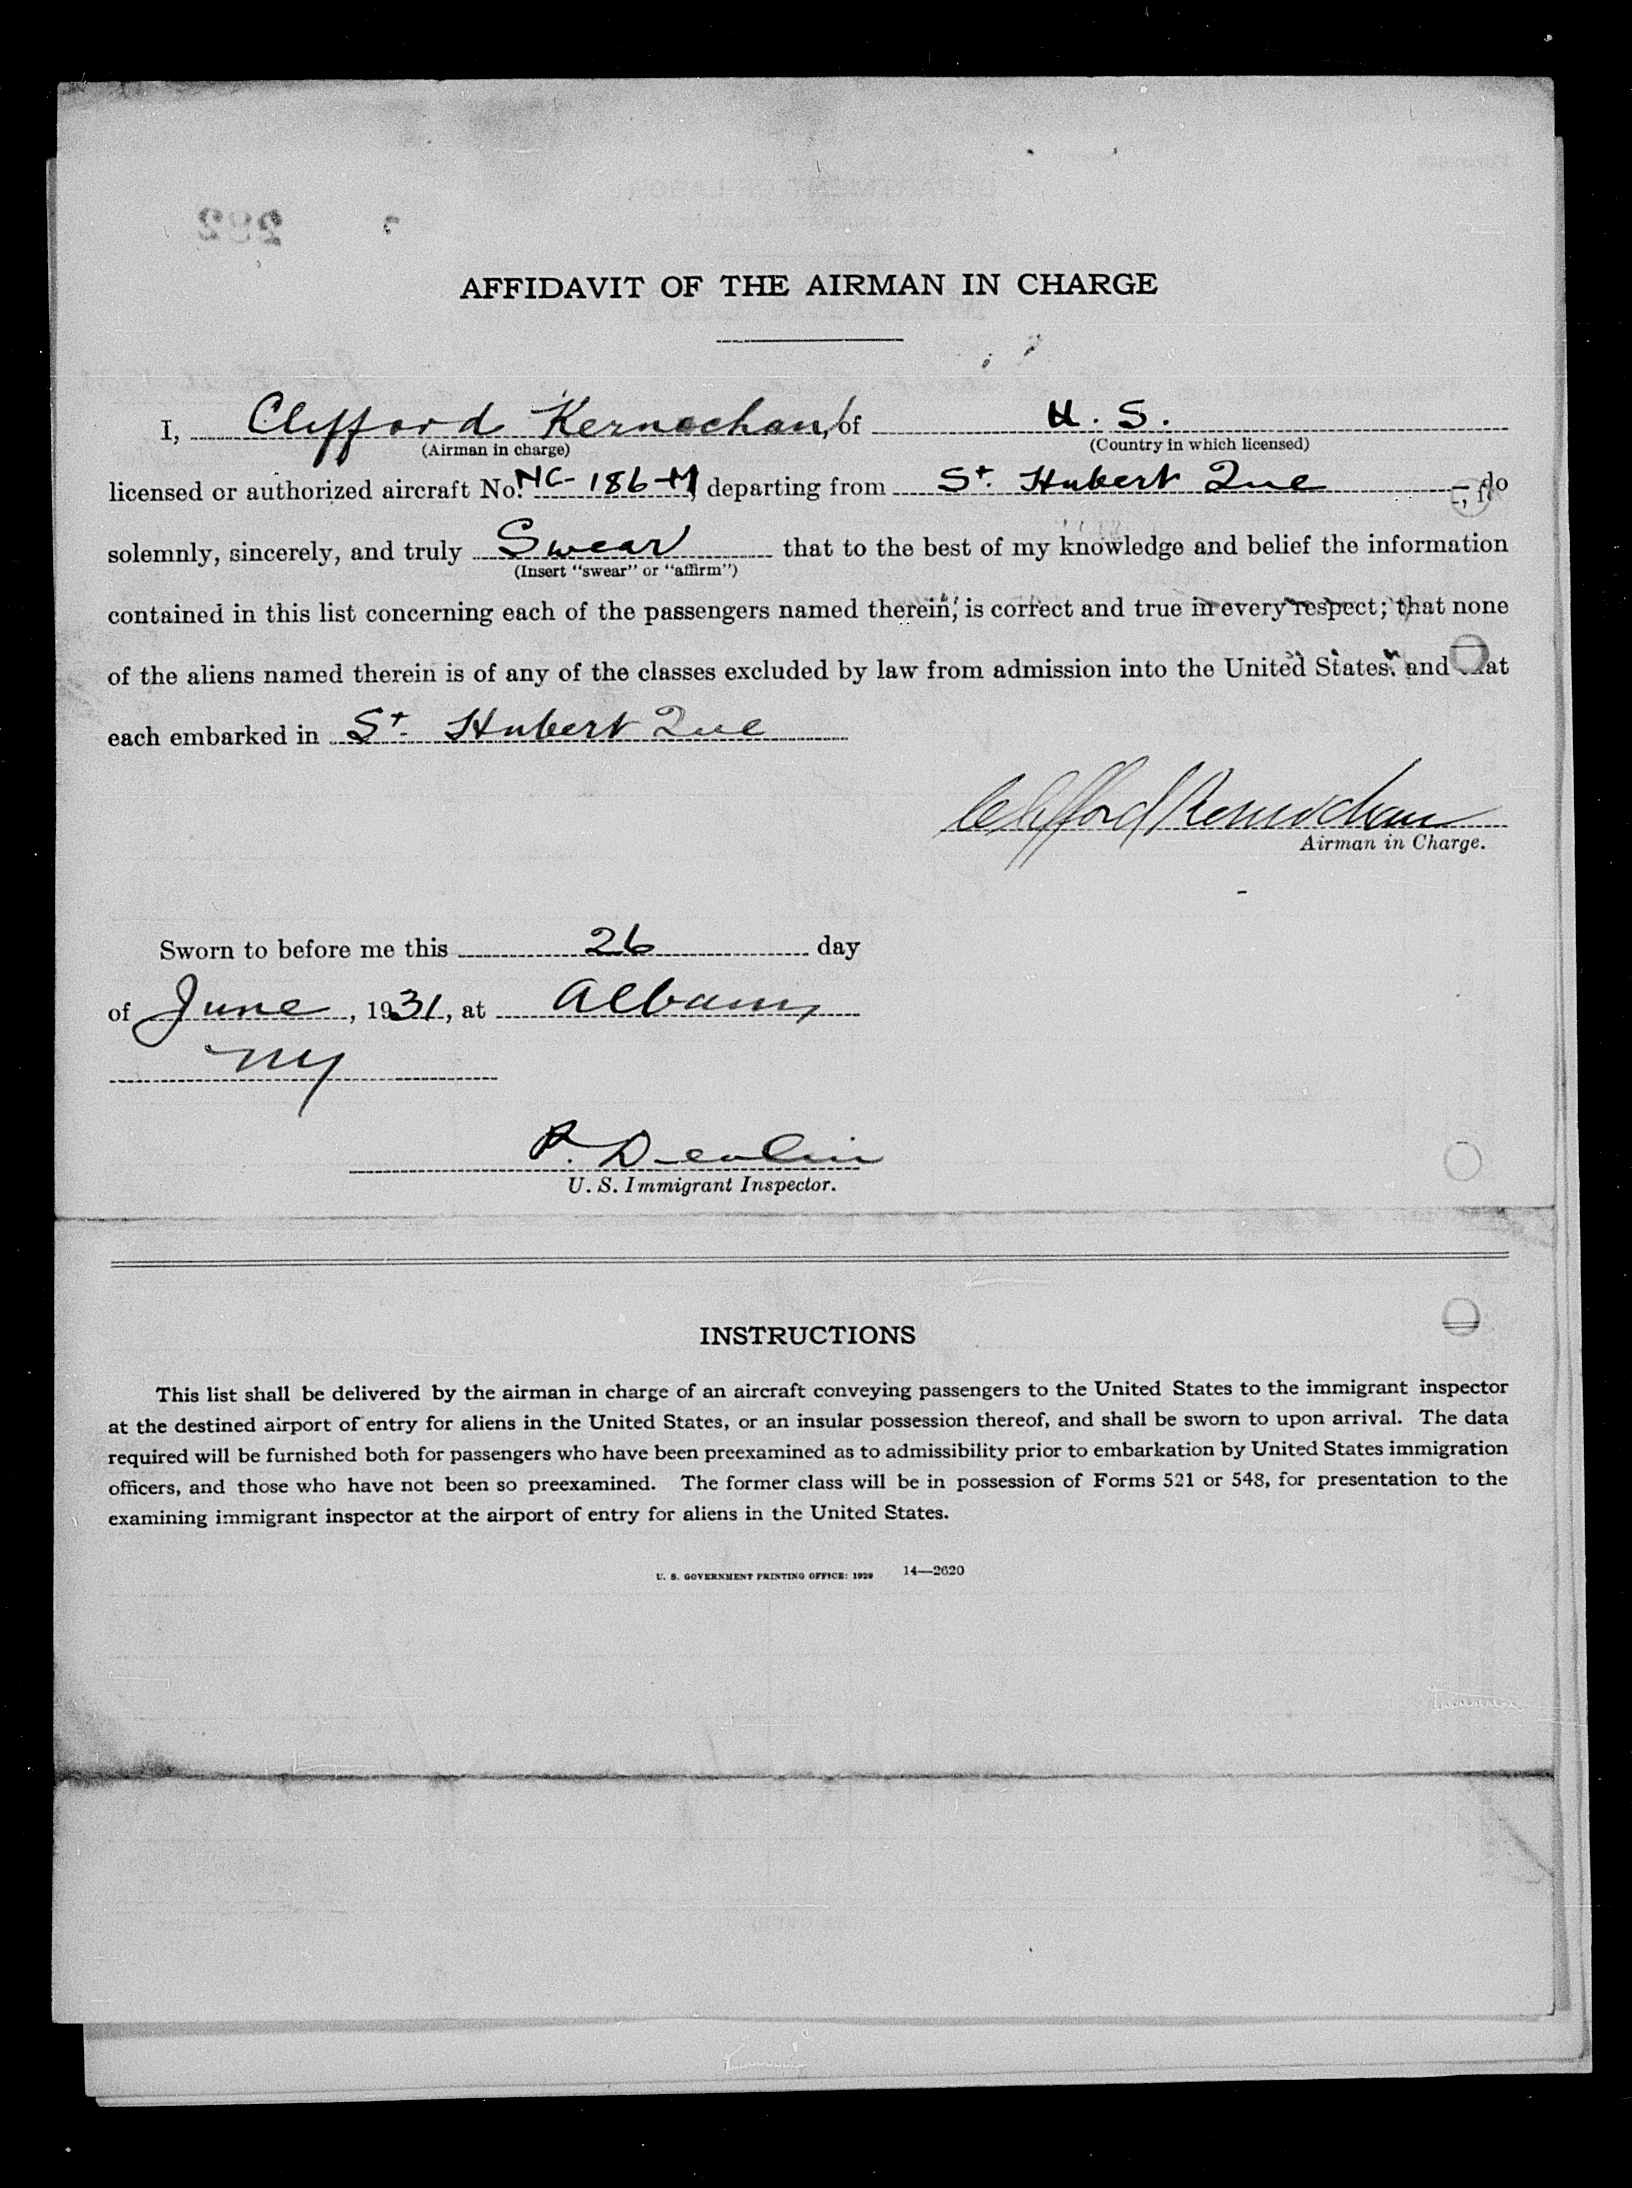 282
AFFIDAVIT OF THE AIRMAN IN CHARGE
I, Clifford Kernochan, of U. S.
(Airman in charge) (Country in which licensed)
licensed or authorized aircraft No. NC-186-M, departing from St. Hubert Que, do
solemnly, sincerely, and truly Swear that to the best of my knowledge and belief the information
(Insert "swear" or "affirm")
contained in this list concerning each of the passengers named therein, is correct and true in every respect; that none
of the aliens named therein is of any of the classes excluded by law from admission into the United States, and that
each embarked in St. Hubert Que
Clifford Kernochan
Airman in Charge.
Sworn to before me this 26 day
of June, 1931, at Albany
NY
P. Devlin
U. S. Immigrant Inspector.
INSTRUCTIONS
This list shall be delivered by the airman in charge of an aircraft conveying passengers to the United States to the immigrant inspector
at the destined airport of entry for aliens in the United States, or an insular possession thereof, and shall be sworn to upon arrival. The data
required will be furnished both for passengers who have been preexamined as to admissibility prior to embarkation by United States immigration
officers, and those who have not been so preexamined. The former class will be in possession of Forms 521 or 548, for presentation to the
examining immigrant inspector at the airport of entry for aliens in the United States.
U. S. GOVERNMENT PRINTING OFFICE: 1929 14—2620